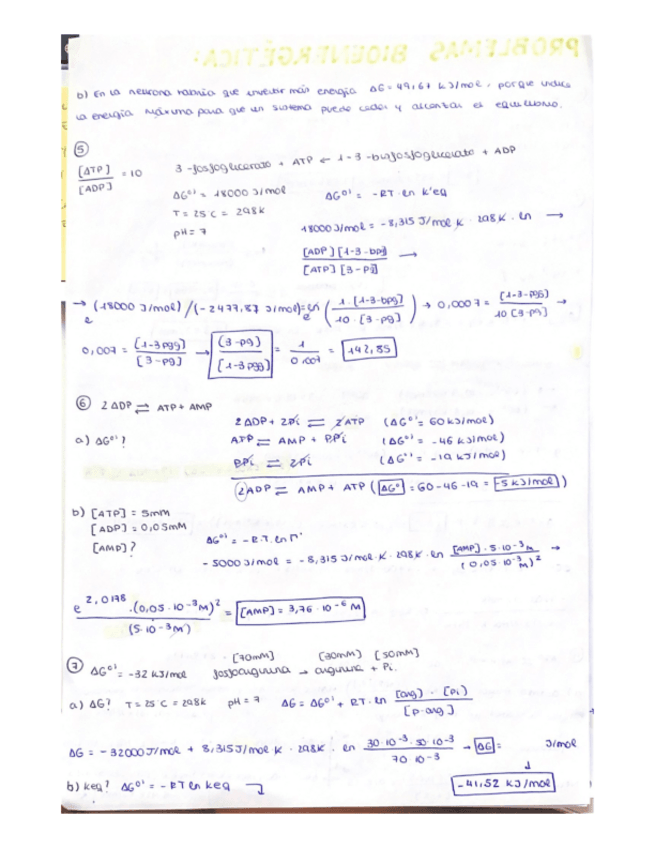 PROBLEMAS BIOENERGÉTICA:
b) En la neurona habría que invertir más energía ΔG = 49,67 kJ/mol, porque indica
la energía máxima para que un sistema puede ceder y alcanzar el equilibrio.
⑤
[ATP]/[ADP] = 10 3-fosfoglicerato + ATP ← 1-3-bifosfoglicerato + ADP
ΔG°' = 18000 J/mol ΔG°' = -RT · ln K'eq
T = 25 C = 298K
18000 J/mol = -8,315 J/mol K · 298K · ln →
pH = 7
[ADP][1-3-bpg]/[ATP][3-Pg] →
→ e (18000 J/mol)/(-2477,87 J/mol) = e ln (1 · [1-3-bpg]/10 · [3-pg]) → 0,0007 = [1-3-pgg]/10 [3-pg] →
0,007 = [1-3pgg]/[3-pg] → (3-pg)/[1-3pgg] = 1/0,007 = 142,85
⑥ 2ADP ⇌ ATP + AMP
2ADP + 2Pi ⇌ 2ATP (ΔG°' = 60 kJ/mol)
a) ΔG°'? ATP ⇌ AMP + PPi (ΔG°' = -46 kJ/mol)
PPi ⇌ 2Pi (ΔG°' = -19 kJ/mol)
2ADP ⇌ AMP + ATP (ΔG° = 60-46-19 = -5 kJ/mol)
b) [ATP] = 5mM
[ADP] = 0,05mM
[AMP]? ΔG°' = -R·T·ln Γ'
-5000 J/mol = -8,315 J/mol·K · 298K · ln [AMP] · 5·10⁻³M/(0,05·10⁻³M)² →
e 2,0178 · (0,05·10⁻³M)²/(5·10⁻³M) = [AMP] = 3,76·10⁻⁶ M
[70mM] [30mM] [50mM]
⑦ ΔG°' = -32 kJ/mol fosfoarginina → arginina + Pi.
a) ΔG? T = 25 C = 298K pH = 7 ΔG = ΔG°' + RT · ln [arg] · [Pi]/[p-arg]
ΔG = -32000 J/mol + 8,315 J/mol K · 298K · ln 30·10⁻³·50·10⁻³/70·10⁻³ → ΔG = J/mol
↓
b) keq? ΔG°' = -RT ln keq -41,52 kJ/mol